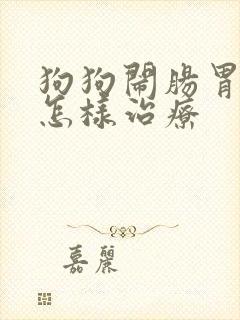 狗狗鬧腸胃
怎樣治療
嘉麗